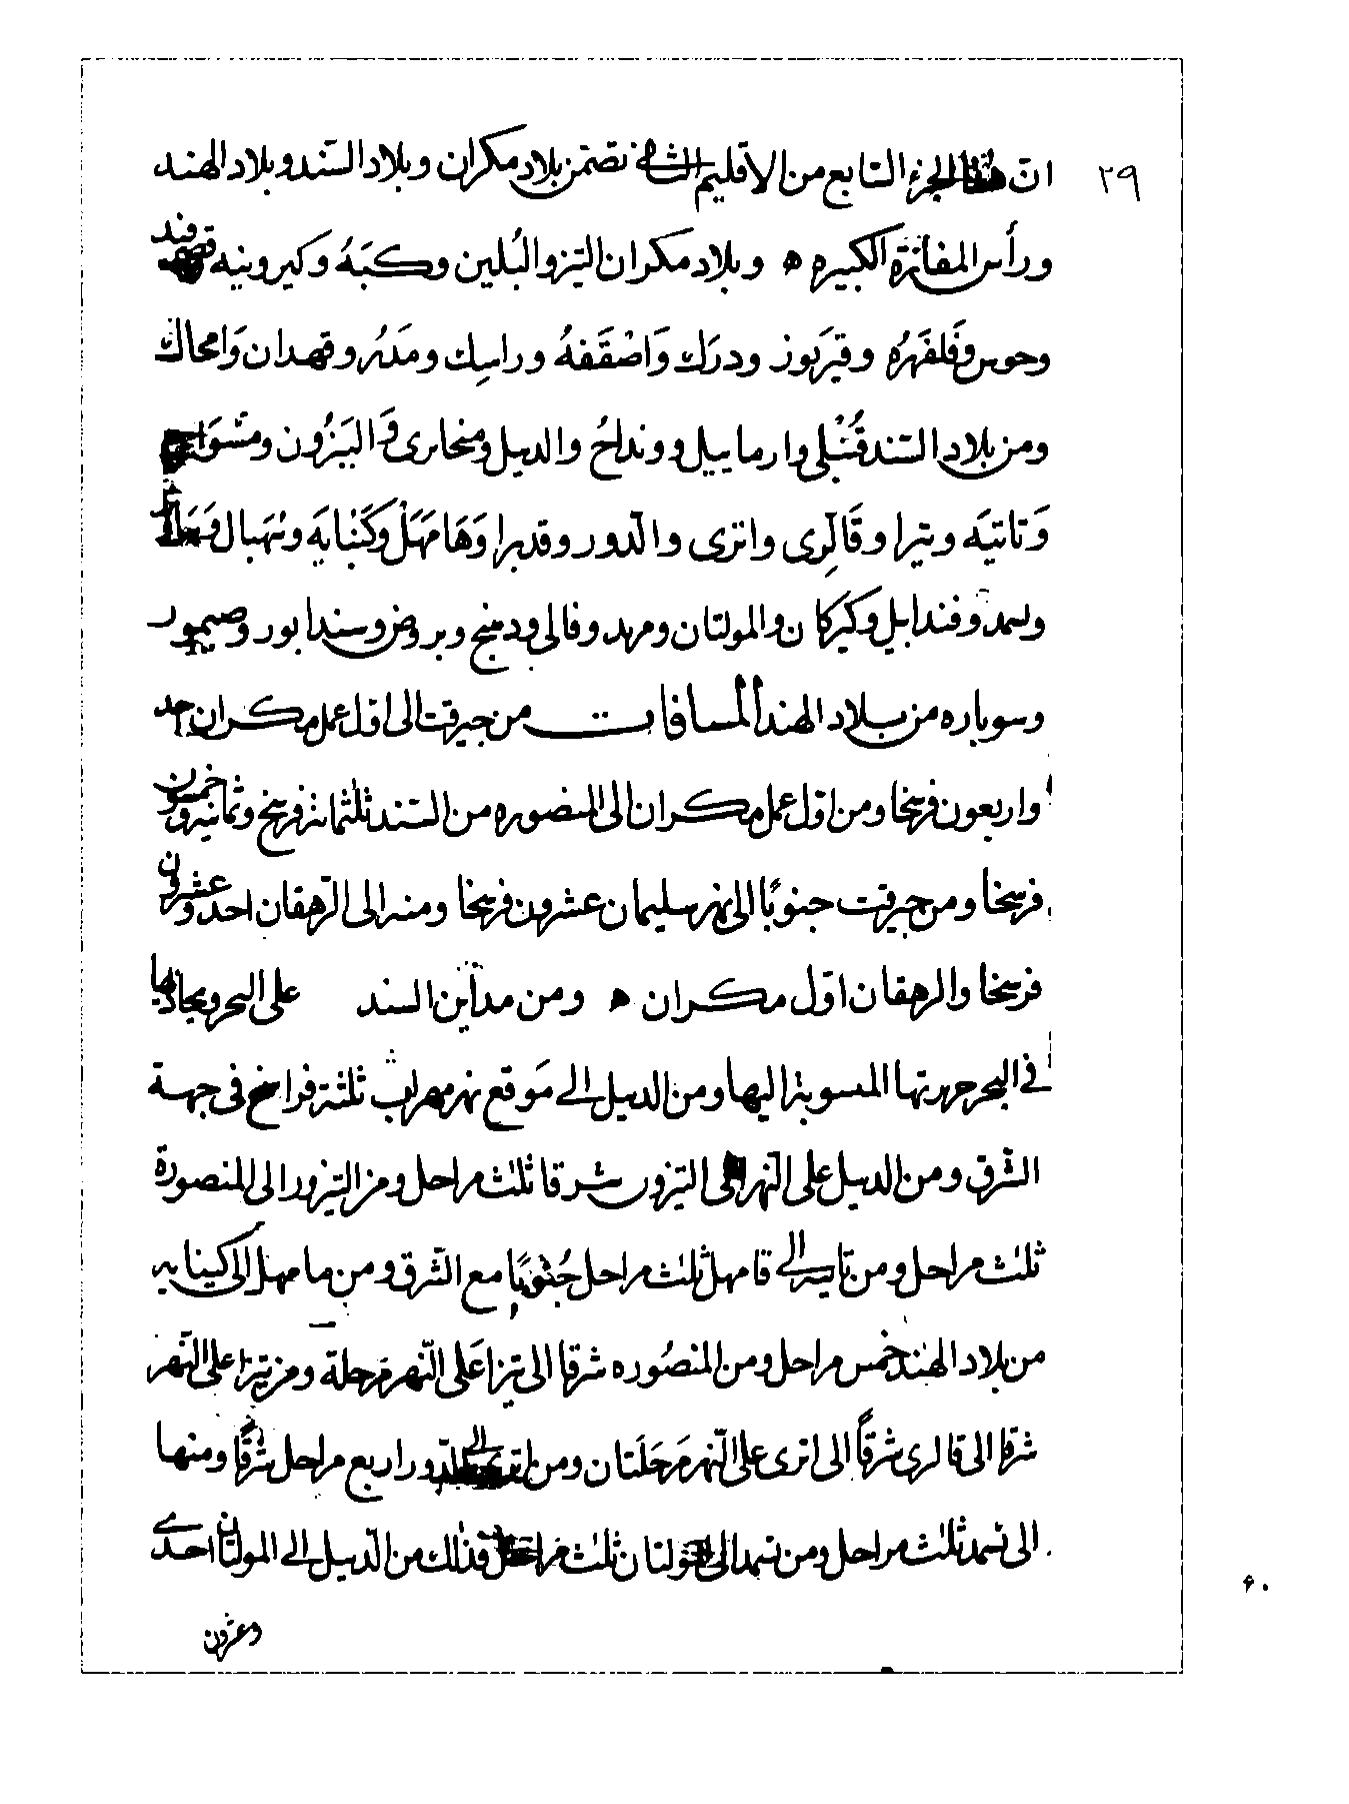 ٢٩
ان هذا الجزء السابع من الاقليم الثانى تضمن بلاد مكران وبلاد السند وبلاد الهند
وراس المفازة الكبيره ه وبلاد مكران التيز والبلين وكبه وكيروينه قصرقند
وحوس وفلفهره وقيربوز ودرك واصقفه وراسك ومده وقهدان وامحاك
ومن بلاد السند قنبلى وارماييل وونداح والديبل ومنحابرى والبيزون
وتاتيه وتيرا وقالرى واترى والدور وقديرا وهامهل وكنبايه ونهبال
وسمد وفندابيل وكيركان والمولتان ومهد وفالى ودمنج وبروض وسندابور وصيمور
وسوباره من بلاد الهند المسافات من جيرفت الى اول عمل مكران احد
واربعون فرسخا ومن اول عمل مكران الى المنصوره من السند ثلثمائة فرسخ وثمانية وخمسون
فرسخا ومن جيرفت جنوبا الى نهر سليمان عشرون فرسخا ومنه الى الرهقان احد وعشرون
فرسخا والرهقان اول مكران ه ومن مداين السند على البحر ويحاذيها
فى البحر جزيرتها المنسوبة اليها ومن الديبل الى موقع نهر مهران ثلثة فراسخ فى جهة
الشرق ومن الديبل على النهر الى التيزون شرقا ثلث مراحل ومن التيزور الى المنصورة
ثلث مراحل ومن تاتيه الى قامهل ثلث مراحل جنوبا مع الشرق ومن مامهل الى كينايه
من بلاد الهند خمس مراحل ومن المنصوره شرقا الى تيزا على النهر مرحلة ومن تيزا على النهر
شرقا الى قالرى شرقا الى اترى على النهر مرحلتان ومن اترى الى الدور اربع مراحل شرقا ومنها
الى سمد ثلث مراحل ومن سمد الى المولتان ثلث مراحل فذلك من الديبل الى المولتان احدى
وعشرون
۶۰